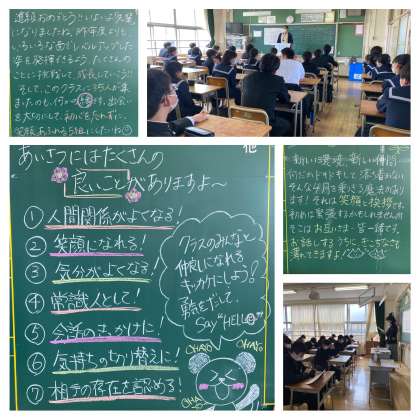 進級おめでとう!!いよいよ2年生
になりましたね。昨年度よりも
いろいろな面でレベルアップした
姿を発揮できるよう、たくさんの
ことに挑戦して成長していこう!!
そして、このクラスに35人が
集まったのも、
出会い
を大切にして、初心を忘れずに、
笑顔あふれる5組にしたいね
あいさつにはたくさんの
良いことがありますよ~
① 人間関係がよくなる!
② 笑顔になれる!
③ 気分がよくなる!
④ 常識人として!
⑤ 会話のきっかけに!
⑥ 気持ちの切り替えに!
⑦ 相手の存在を認める!
クラスのみんなと
仲良しになれる
キッカケにしよう!
勇気をだして、
Say "HELLO"
OHAYO
OHAYO
OHA
新しい環境、新しい仲間
何だかドキドキして落ち着かない
そんな4月を乗りきる魔法があり
ます!それは笑顔と挨拶です。
初めは緊張するかもしれませんが
そこはお互いさま!皆一緒です。
お話しするうちに、ぎこちなさも
薄れてきますよ!